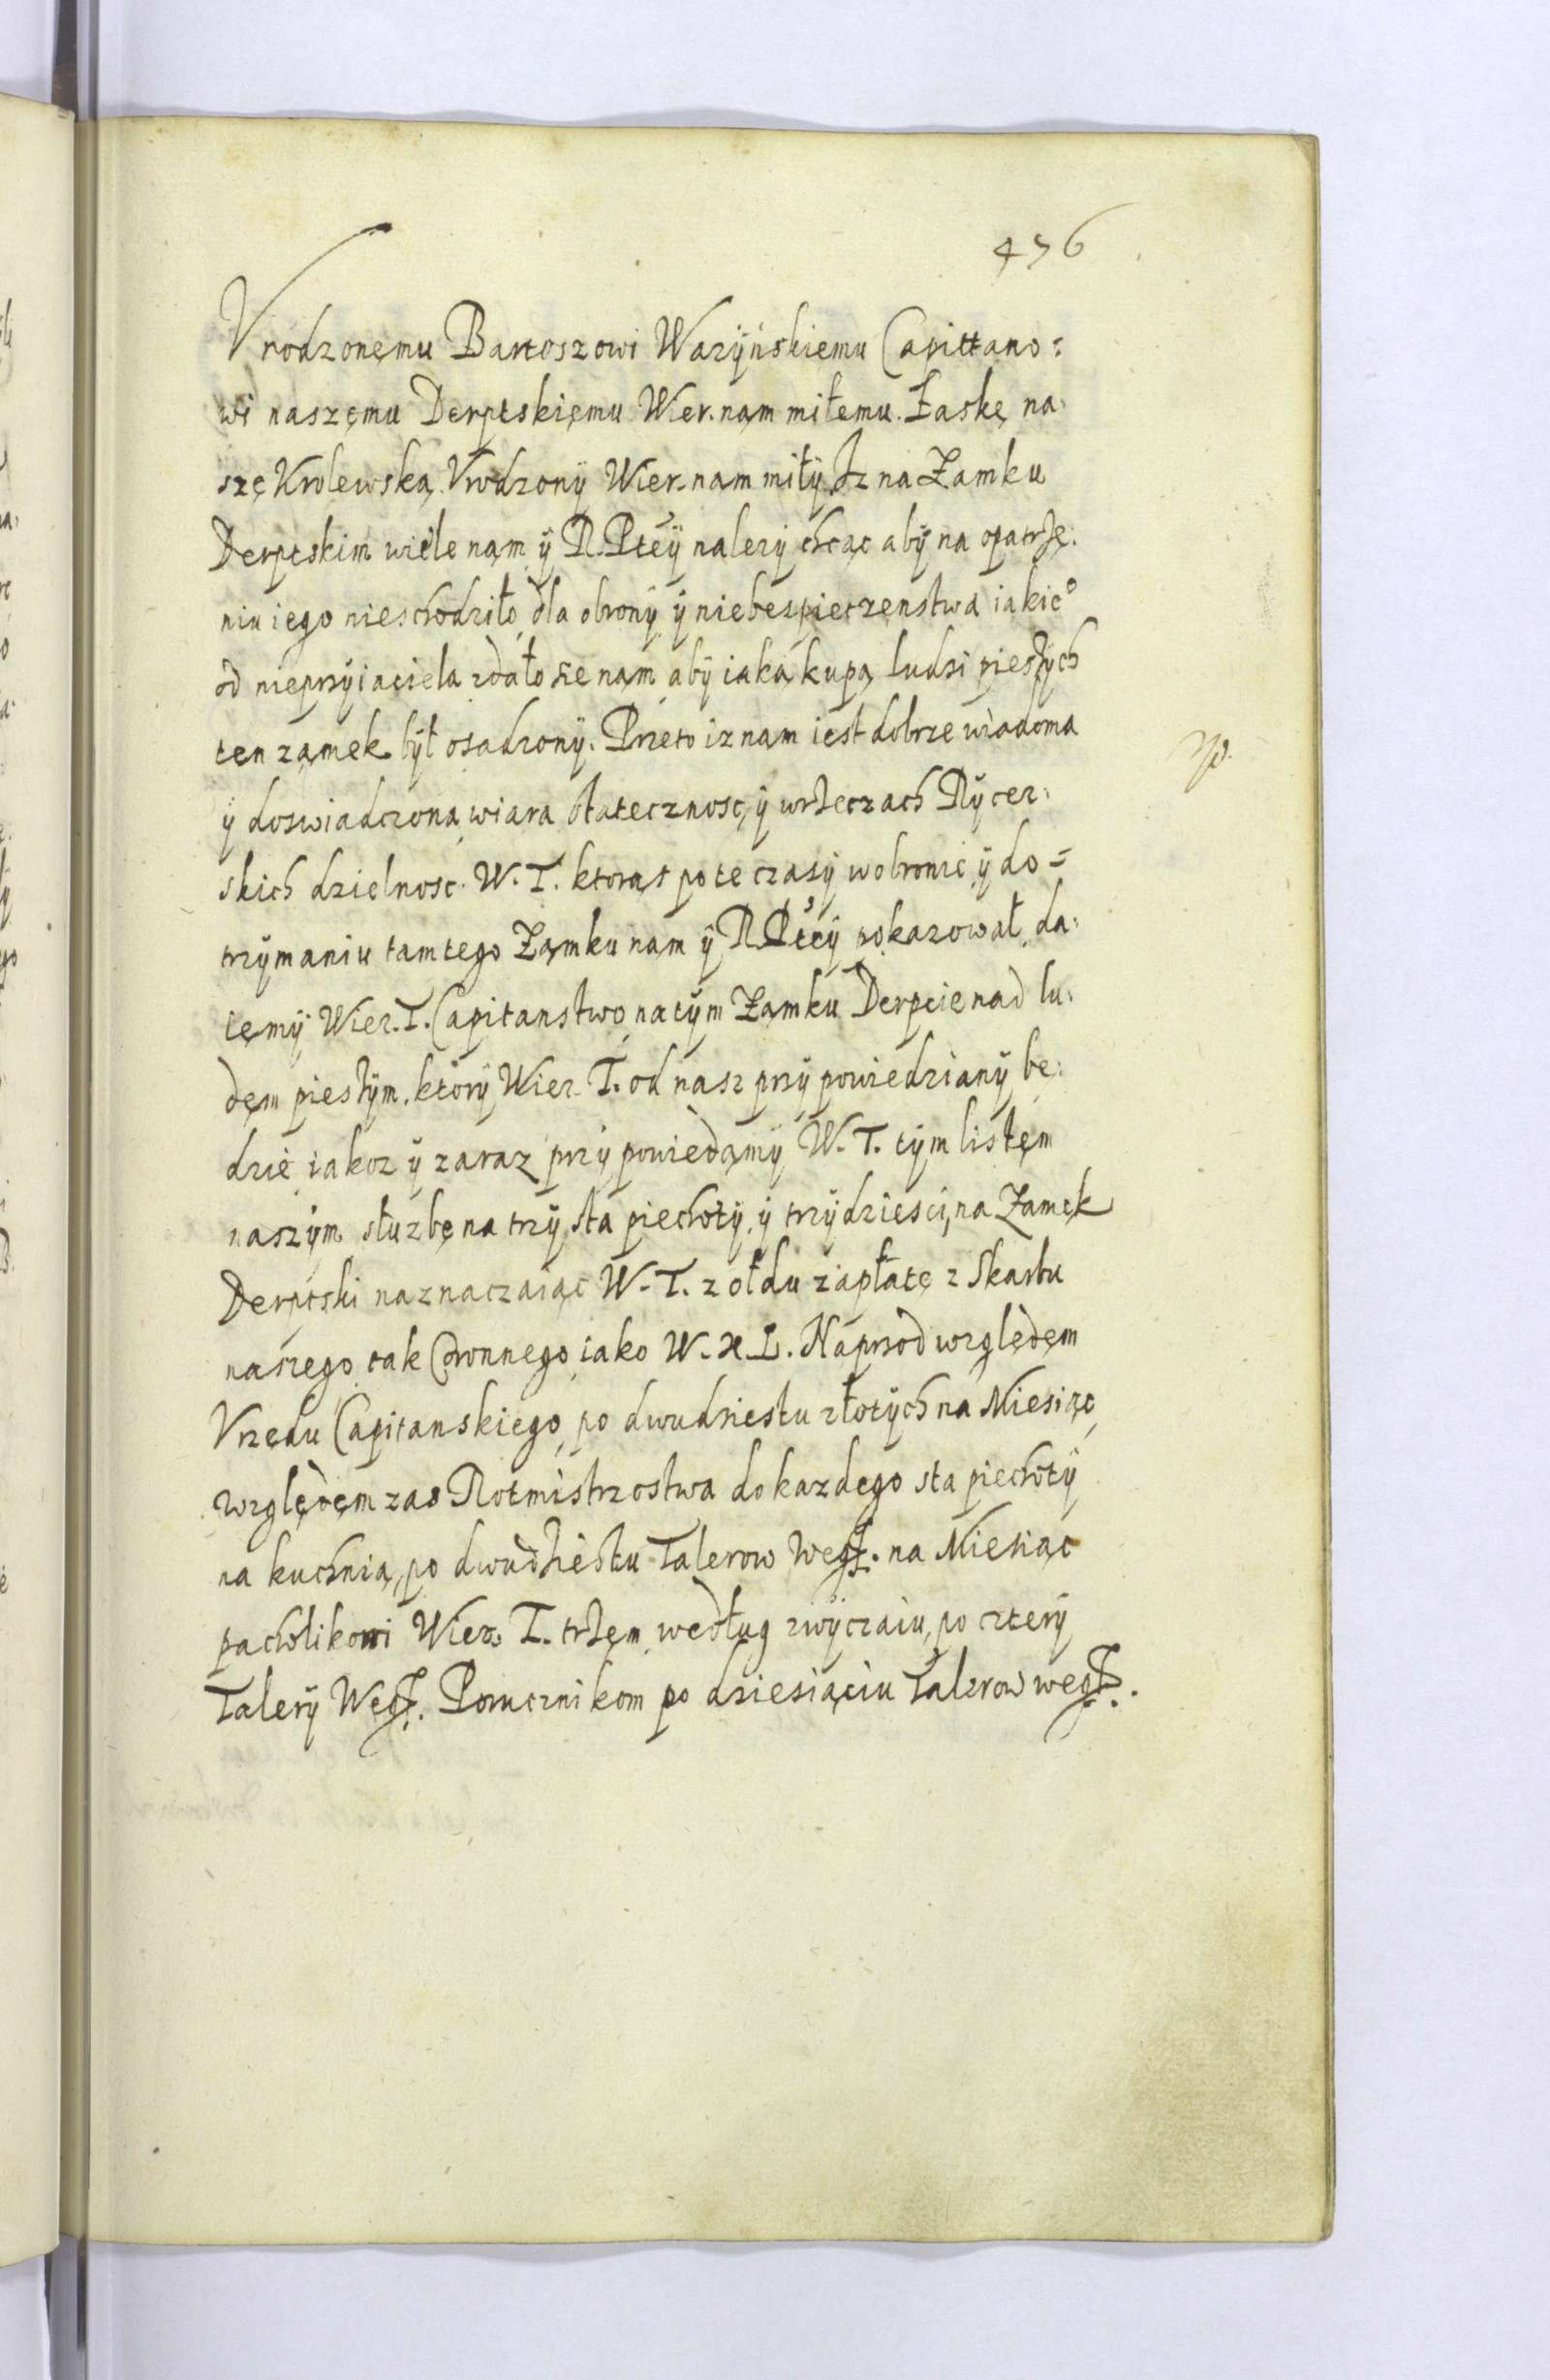 476
Vrodzonemu Bartoszowi Ważÿńskiemu Capittano=
wi naszemu Derptskiemu Wier. nam miłemu. Łaskę na=
szę Krolewską. Vrodzonÿ Wier. nam miłÿ. Jz na Zamku
Derptskim wiele nam ÿ R. Pteÿ należÿ chcąc abÿ na opatrze=
niu iego nieschodziło, dla obronÿ ÿ niebespieczenstwa iakieº
od nieprzÿiaciela zdało sie nam abÿ iaką kupą ludzi pieszÿch
ten zamek bÿł osadzonÿ. Przeto iz nam iest dobrze wiadoma
ÿ doswiadczona wiara statecznosc, ÿ w rzeczach Rÿcer=
skich dzielnosc W. T. ktorąs po te czasÿ w obronie ÿ do=
trzÿmaniu tamtego Zamku nam ÿ R. Pteÿ pokazował, da=
iemÿ Wier. T. Capitanstwo na tÿm Zamku Derpcie nad lu=
dem pieszÿm, ktorÿ Wier. T. od nasz przÿpowiedzianÿ bę=
dzie iakoz ÿ zaraz przÿpowiedamÿ W. T. tÿm listem
naszÿm słuzbę na trzÿ sta piechotÿ, ÿ trzÿdziesci, na Zamek
Derptski naznaczaiąc W. T. zołdu zapłatę z Skarbu
naszego tak Coronnego iako W. X. L. Naprzod względem
Vrzędu Capitanskiego, po dwudziestu złotÿch na Miesiąc,
względem zas Rotmistrzostwa do kazdego sta piechotÿ
na kuchnią, po dwudziestu Talerow Węg. na Miesiąc
pacholikowi Wier. T. trzem według zwÿczaiu, po czterÿ
Talerÿ Węg. Porucznikom po dziesiąciu Talerow węg.